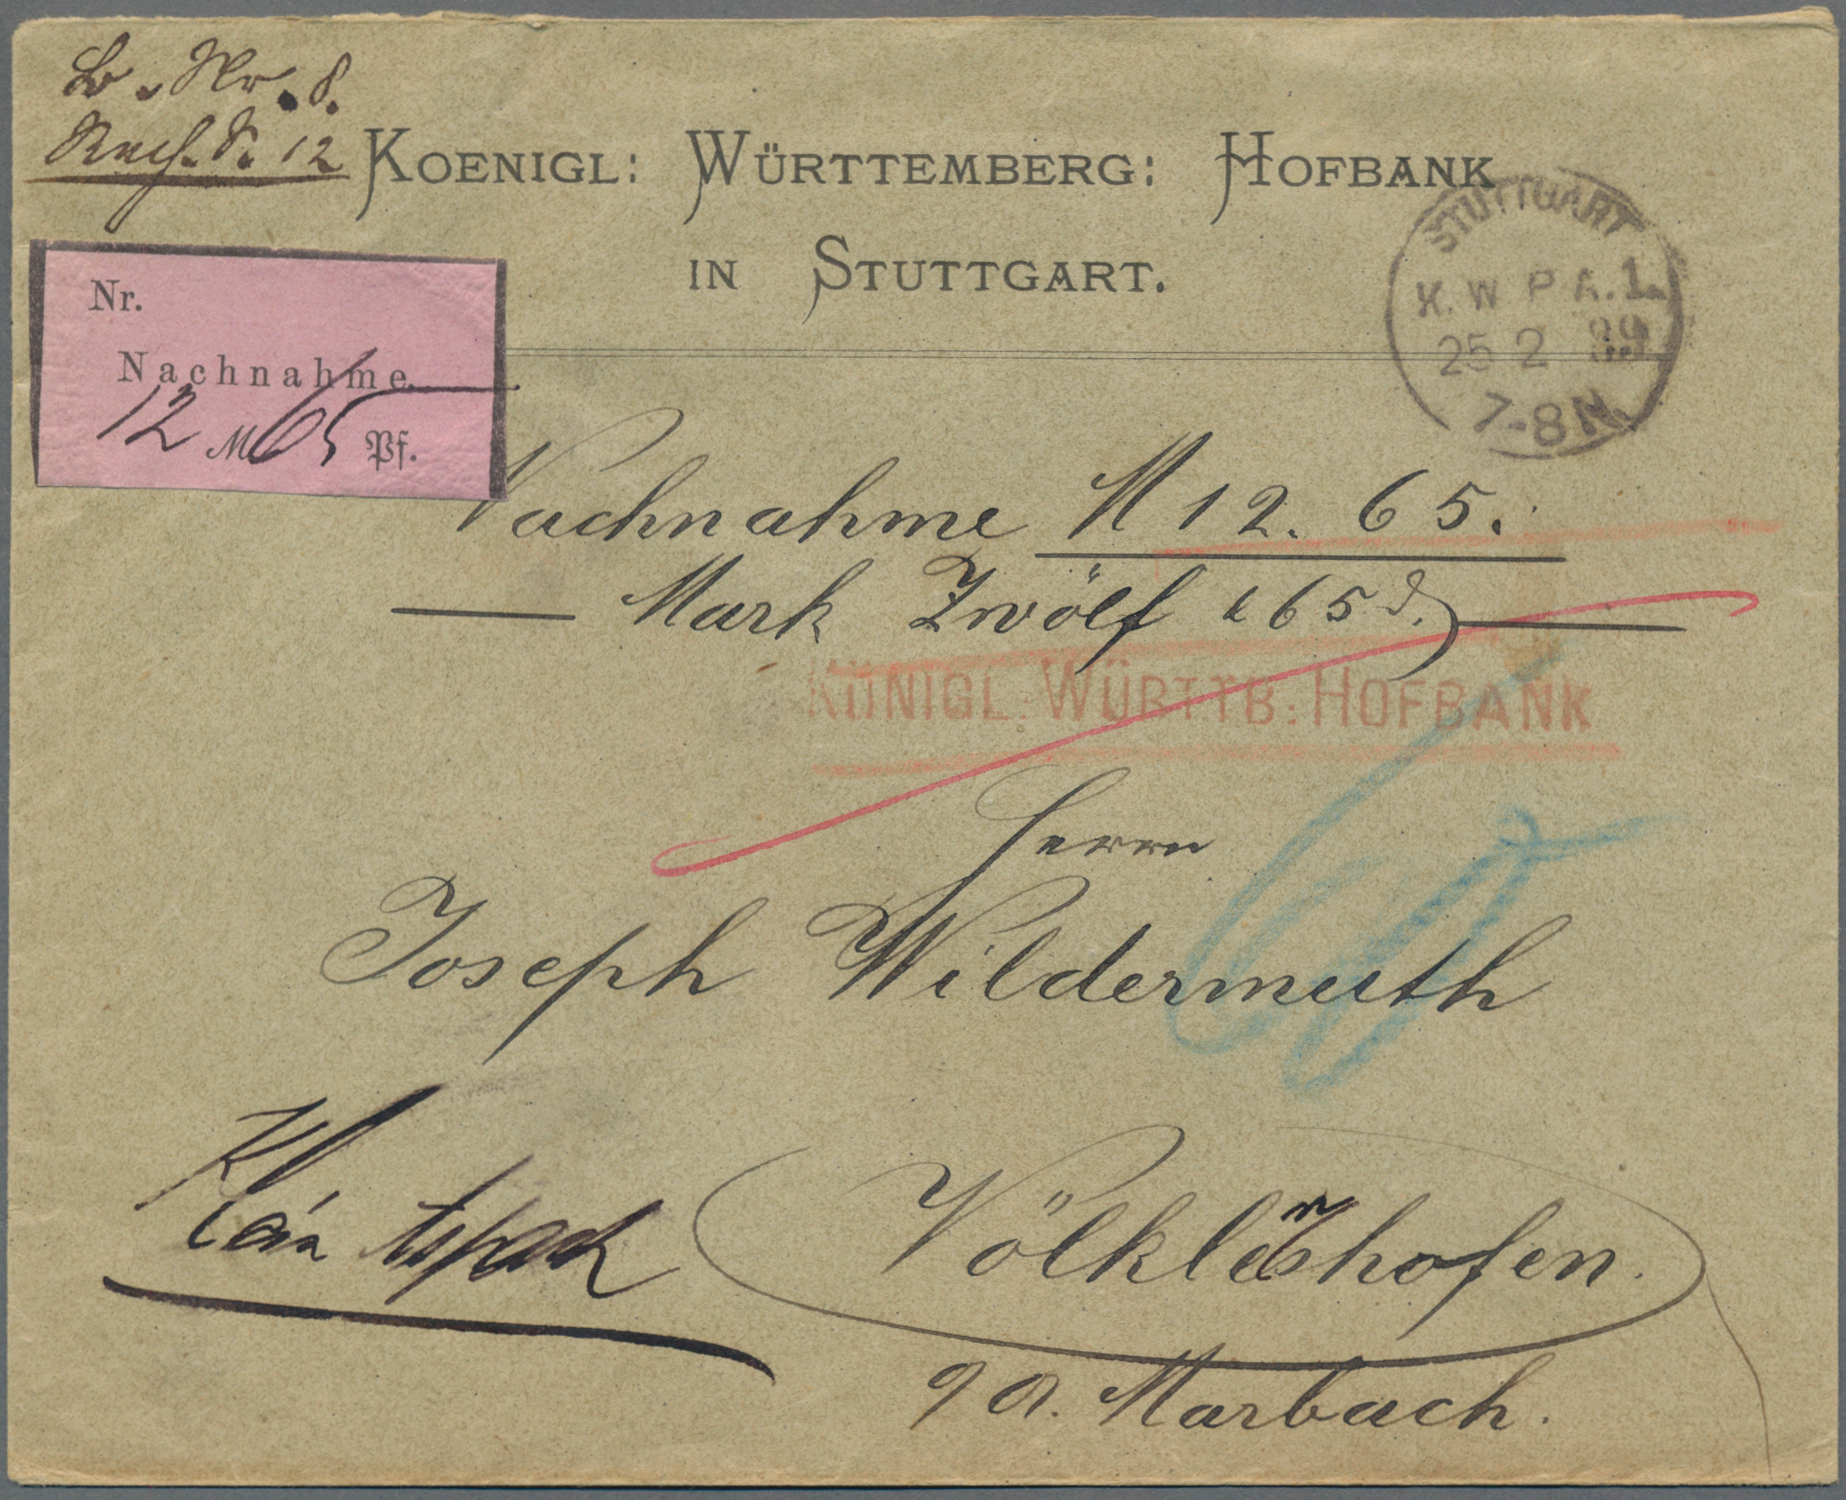 Nr. 8.
12
KOENIGL: WÜRTTEMBERG: HOFBANK
IN STUTTGART.
STUTTGART
K. W P A. 1.
25 2 89
7-8 N.
Nr.
Nachnahme
12 M 65 Pf.
Nachnahme M 12. 65.
Mark Zwölf & 65 ₰.
KÖNIGL. WÜRTTB: HOFBANK
Herrn
Joseph Wildermuth
Klein Aspach
Völkleshofen.
OA. Marbach.